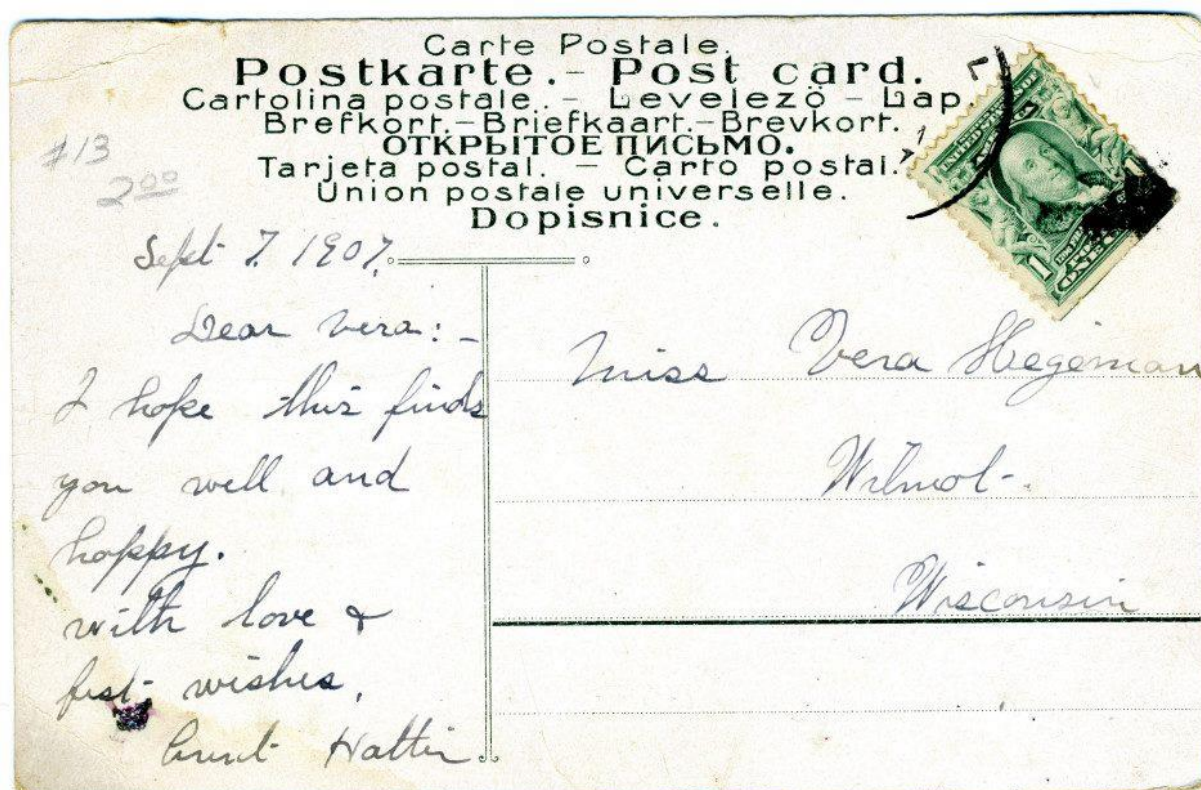 Carte Postale.
Postkarte. - Post card.
Cartolina postale. - Levelezö - Lap.
Brefkort. - Briefkaart. - Brevkort.
ОТКРЫТОЕ ПИСЬМО.
Tarjeta postal. - Carto postal.
Union postale universelle.
Dopisnice.
#13
2.00
Sept 7. 1907.
Dear Vera: -
I hope this finds
you well and
happy.
with love &
best wishes,
Aunt Hattie
Miss Vera Hegeman
Wilmot -
Wisconsin
1